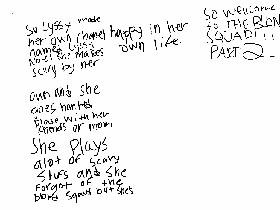 So Lyssy made
her own (home) happy in her
names Lyss own life.
Not! she makes
scary by her
own and she
goes
 with her
friends or mom.
She Plays
alot of scary
stufs and she
Forgot of the
blong squad but she's
So welcome
to THE BLON
SQUAD!!!
PART 2